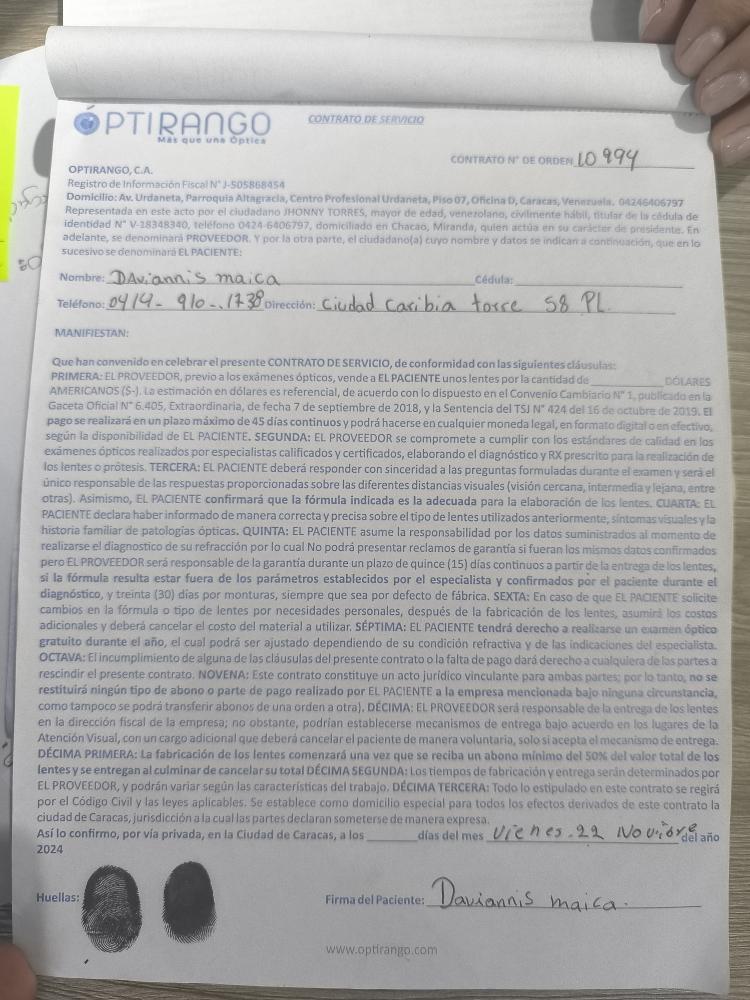 ÓPTIRANGO
Más que una Óptica
CONTRATO DE SERVICIO
CONTRATO N° DE ORDEN 10994
OPTIRANGO, C.A.
Registro de Información Fiscal N° J-505868454
Domicilio: Av. Urdaneta, Parroquia Altagracia, Centro Profesional Urdaneta, Piso 07, Oficina D, Caracas, Venezuela. 04246406797
Representada en este acto por el ciudadano JHONNY TORRES, mayor de edad, venezolano, civilmente hábil, titular de la cédula de
identidad N° V-18348340, teléfono 0424-6406797, domiciliado en Chacao, Miranda, quien actúa en su carácter de presidente. En
adelante, se denominará PROVEEDOR. Y por la otra parte, el ciudadano(a) cuyo nombre y datos se indican a continuación, que en lo
sucesivo se denominará EL PACIENTE:
Nombre: DAviannis maica Cédula:
Teléfono: 0414-910-.1738 Dirección: Ciudad Caribia torre 58 PL.
MANIFIESTAN:
Que han convenido en celebrar el presente CONTRATO DE SERVICIO, de conformidad con las siguientes cláusulas:
PRIMERA: EL PROVEEDOR, previo a los exámenes ópticos, vende a EL PACIENTE unos lentes por la cantidad de ____________ DÓLARES
AMERICANOS ($-). La estimación en dólares es referencial, de acuerdo con lo dispuesto en el Convenio Cambiario N° 1, publicado en la
Gaceta Oficial N° 6.405, Extraordinaria, de fecha 7 de septiembre de 2018, y la Sentencia del TSJ N° 424 del 16 de octubre de 2019. El
pago se realizará en un plazo máximo de 45 días continuos y podrá hacerse en cualquier moneda legal, en formato digital o en efectivo,
según la disponibilidad de EL PACIENTE. SEGUNDA: EL PROVEEDOR se compromete a cumplir con los estándares de calidad en los
exámenes ópticos realizados por especialistas calificados y certificados, elaborando el diagnóstico y RX prescrito para la realización de
los lentes o prótesis. TERCERA: EL PACIENTE deberá responder con sinceridad a las preguntas formuladas durante el examen y será el
único responsable de las respuestas proporcionadas sobre las diferentes distancias visuales (visión cercana, intermedia y lejana, entre
otras). Asimismo, EL PACIENTE confirmará que la fórmula indicada es la adecuada para la elaboración de los lentes. CUARTA: EL
PACIENTE declara haber informado de manera correcta y precisa sobre el tipo de lentes utilizados anteriormente, síntomas visuales y la
historia familiar de patologías ópticas. QUINTA: EL PACIENTE asume la responsabilidad por los datos suministrados al momento de
realizarse el diagnostico de su refracción por lo cual No podrá presentar reclamos de garantía si fueran los mismos datos confirmados
pero EL PROVEEDOR será responsable de la garantía durante un plazo de quince (15) días continuos a partir de la entrega de los lentes,
si la fórmula resulta estar fuera de los parámetros establecidos por el especialista y confirmados por el paciente durante el
diagnóstico, y treinta (30) días por monturas, siempre que sea por defecto de fábrica. SEXTA: En caso de que EL PACIENTE solicite
cambios en la fórmula o tipo de lentes por necesidades personales, después de la fabricación de los lentes, asumirá los costos
adicionales y deberá cancelar el costo del material a utilizar. SÉPTIMA: EL PACIENTE tendrá derecho a realizarse un examen óptico
gratuito durante el año, el cual podrá ser ajustado dependiendo de su condición refractiva y de las indicaciones del especialista.
OCTAVA: El incumplimiento de alguna de las cláusulas del presente contrato o la falta de pago dará derecho a cualquiera de las partes a
rescindir el presente contrato. NOVENA: Este contrato constituye un acto jurídico vinculante para ambas partes; por lo tanto, no se
restituirá ningún tipo de abono o parte de pago realizado por EL PACIENTE a la empresa mencionada bajo ninguna circunstancia,
como tampoco se podrá transferir abonos de una orden a otra). DÉCIMA: EL PROVEEDOR será responsable de la entrega de los lentes
en la dirección fiscal de la empresa; no obstante, podrían establecerse mecanismos de entrega bajo acuerdo en los lugares de la
Atención Visual, con un cargo adicional que deberá cancelar el paciente de manera voluntaria, solo si acepta el mecanismo de entrega.
DÉCIMA PRIMERA: La fabricación de los lentes comenzará una vez que se reciba un abono mínimo del 50% del valor total de los
lentes y se entregan al culminar de cancelar su total DÉCIMA SEGUNDA: Los tiempos de fabricación y entrega serán determinados por
EL PROVEEDOR, y podrán variar según las características del trabajo. DÉCIMA TERCERA: Todo lo estipulado en este contrato se regirá
por el Código Civil y las leyes aplicables. Se establece como domicilio especial para todos los efectos derivados de este contrato la
ciudad de Caracas, jurisdicción a la cual las partes declaran someterse de manera expresa.
Así lo confirmo, por vía privada, en la Ciudad de Caracas, a los ________ días del mes Vienes.22 Novibre del año
2024
Huellas:
Firma del Paciente: Daviannis maica.
www.optirango.com